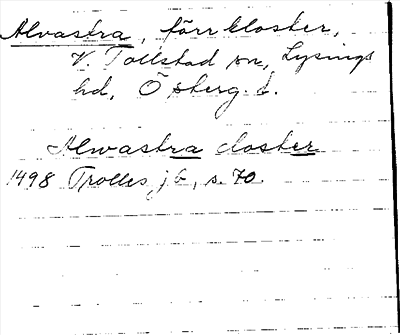 Alvastra, förr kloster,
V. Tollstad sn, Lysings
hd, Ö sberg. l.
Alwastra closter
1498 Trolles, jb, s. 70.